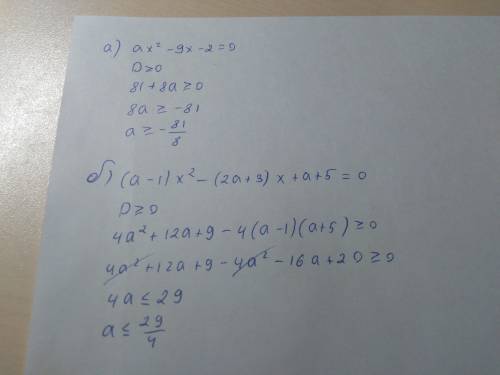 а) ax² - 9x - 2 = 0
D ≥ 0
81 + 8a ≥ 0
8a ≥ -81
a ≥ - 81/8
б) (a - 1) x² - (2a + 3) x + a + 5 = 0
D ≥ 0
4a² + 12a + 9 - 4(a - 1)(a + 5) ≥ 0
4a² + 12a + 9 - 4a² - 16a + 20 ≥ 0
4a ≤ 29
a ≤ 29/4